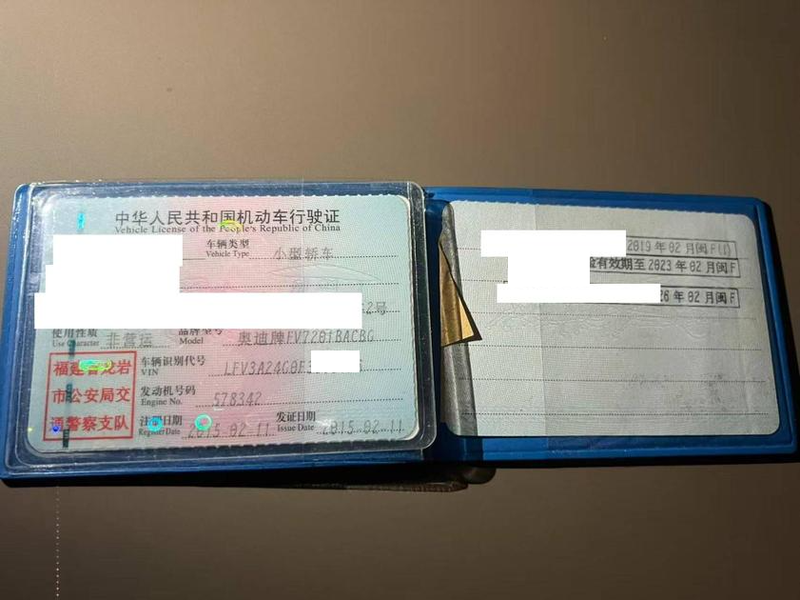 中华人民共和国机动车行驶证
Vehicle License of the People's Republic of China
车辆类型 小型轿车
Vehicle Type
2号
使用性质 非营运 品牌型号 奥迪牌FV7201BACBG
Use Character Model
车辆识别代号 LFV3A24G0F
VIN
发动机号码 578342
Engine No.
注册日期 2015-02-11 发证日期 2015-02-11
Register Date Issue Date
福建省龙岩
市公安局交
通警察支队
2019年02月闽F(1)
验有效期至2023年02月闽F
26年02月闽F